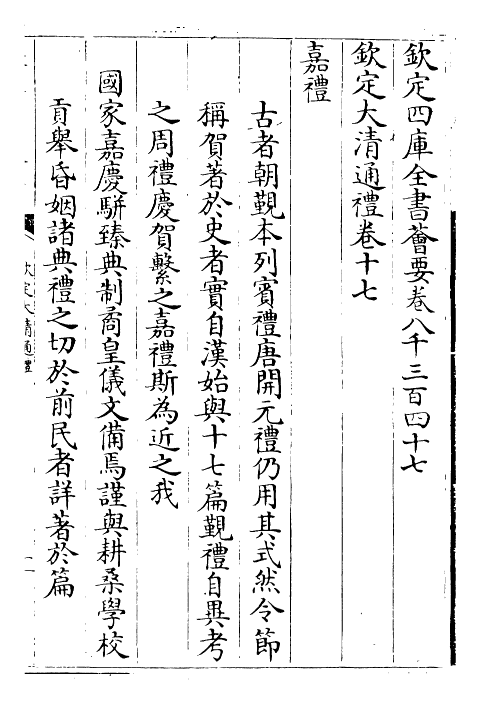 欽定四庫全書薈要卷八千三百四十七
欽定大清通禮卷十七
嘉禮
古者朝覲本列賓禮唐開元禮仍用其式然令節
稱賀著於史者實自漢始與十七篇覲禮自異考
之周禮慶賀繫之嘉禮斯為近之我
國家嘉慶駢臻典制矞皇儀文備焉謹與耕桑學校
貢舉昏姻諸典禮之切於前民者詳著於篇
欽定大清通禮